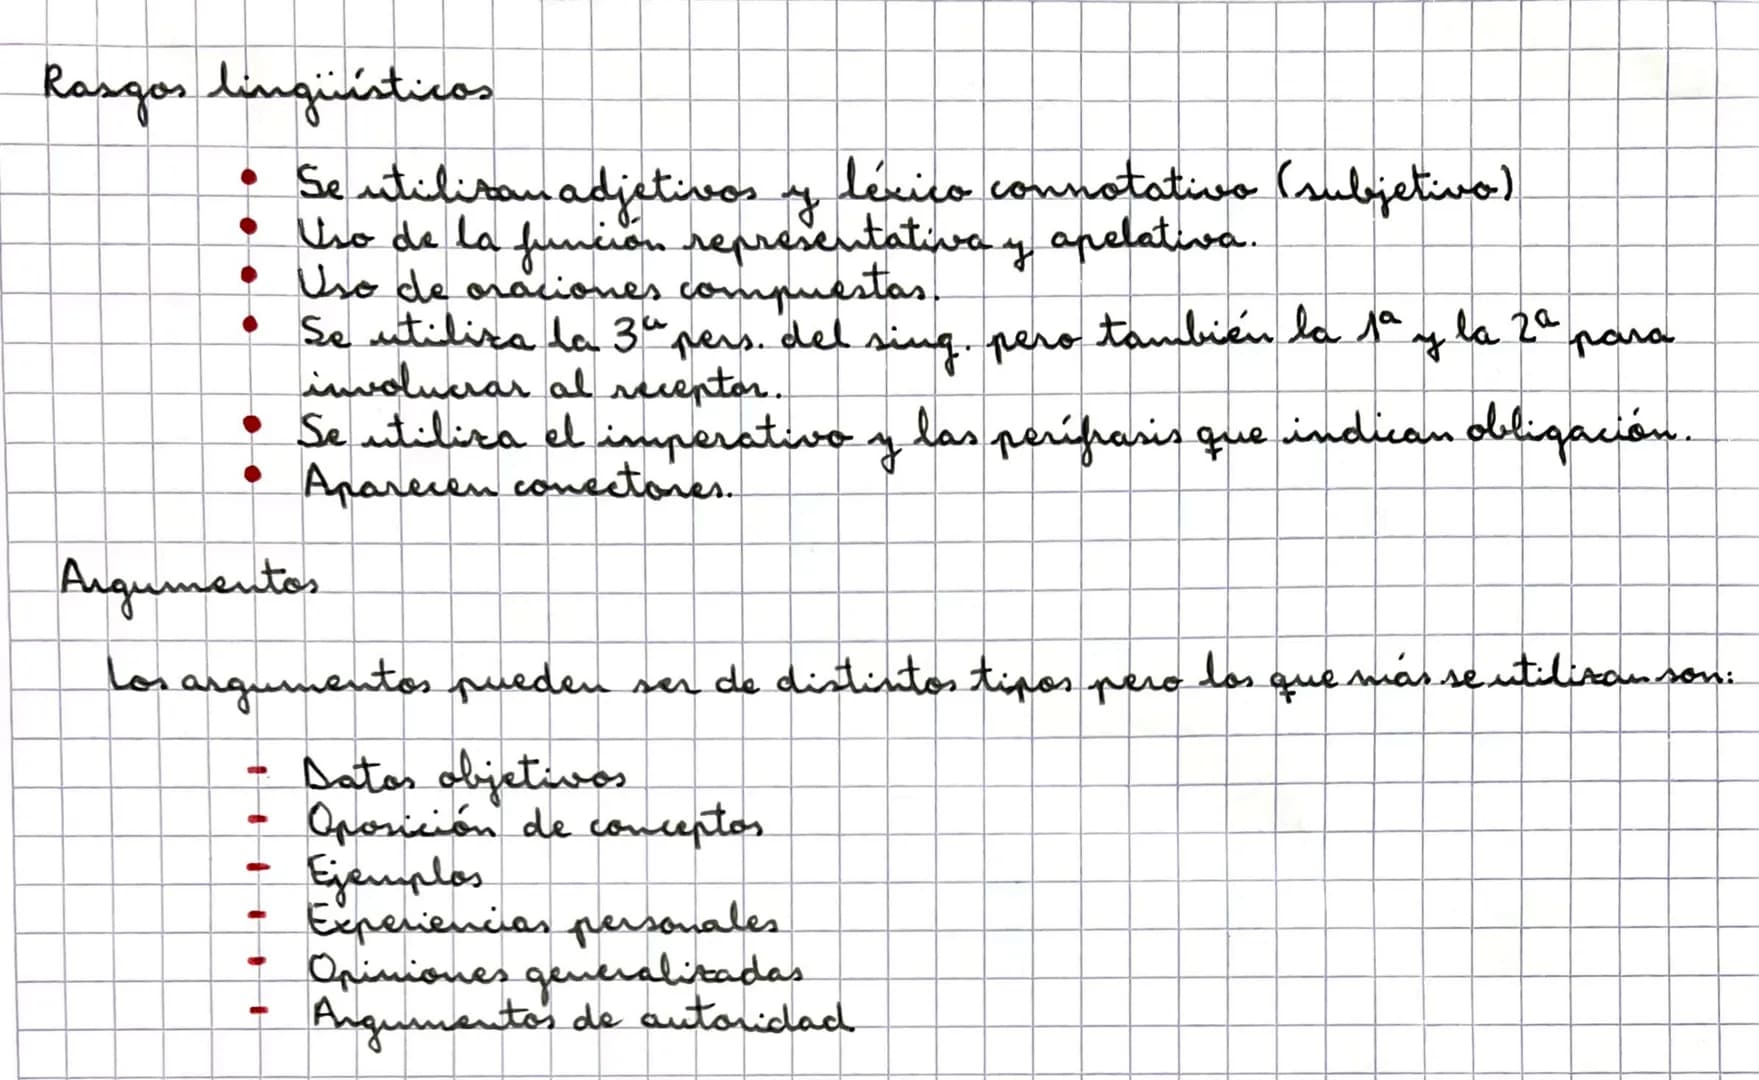 Rasgos lingüísticos
• Se utilizan adjetivos y léxico connotativo (subjetivo)
• Uso de la función representativa y apelativa.
• Uso de oraciones compuestas.
• Se utiliza la 3ª pers. del sing. pero también la 1ª y la 2ª para
involucrar al receptor.
• Se utiliza el imperativo y las perífrasis que indican obligación.
• Aparecen conectores.
Argumentos
Los argumentos pueden ser de distintos tipos pero los que más se utilizan son:
- Datos objetivos
- Oposición de conceptos
- Ejemplos
- Experiencias personales
- Opiniones generalizadas
- Argumentos de autoridad